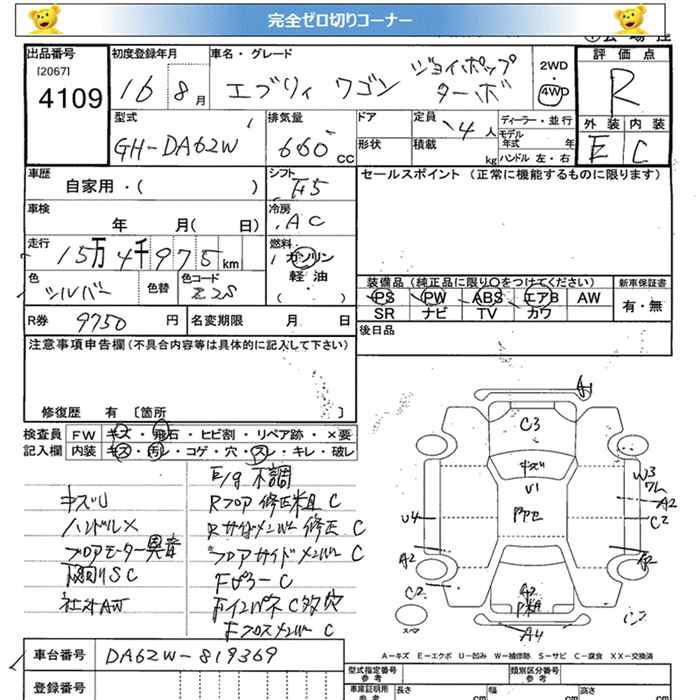 完全ゼロ切りコーナー
出品番号
[2067]
4109
初度登録年月
16 8月
車名・グレード
エブリィ ワゴン
ジョイポップ
ターボ
2WD
・
4WD
評価点
R
外装 内装
E C
型式
GH-DA62W
排気量
660 CC
ドア
形状
定員
4人
積載
kg
ディーラー・並行
モデル
年式 年
ハンドル 左・右
車歴
自家用・( )
シフト
F5
セールスポイント (正常に機能するものに限ります)
車検
年 月( 日)
冷房
AC
走行
15万4千975km
燃料
ガソリン
軽油
・
( )
色
シルバー
色替
色コード
Z2S
装備品(純正品に限り○をつけてください)
PS PW ABS エアB AW
SR ナビ TV カワ
新車保証書
有・無
R券 9750 円
名変期限 月 日
後日品
注意事項申告欄(不具合内容等は具体的に記入して下さい)
修復歴 有 〔箇所 〕
検査員
記入欄
FW キズ・飛石・ヒビ割・リペア跡・×要
内装 キズ・汚レ・コゲ・穴・スレ・キレ・破レ
E/g 不調
キズU
Rフロア 修正粗 C
ハンドルX
Rサイドメンバー 修正 C
フロアモーター異音
フロアサイドメンバー C
下廻りSC
Fピラー C
社外AW
FインパネC多穴
Fクロスメンバー C
A1
C3
キズ
U1
W3
ワレ
A2
C2
U4
A2
A2
C2
A4
スペア
A-キズ E-エクボ U-凹み W-補修跡 S-サビ C-腐食 XX-交換済
車台番号
DA62W-819369
登録番号
型式指定番号
参考
類別区分番号
参考
車庫証明用
参考
長さ cm
幅 cm
高さ cm